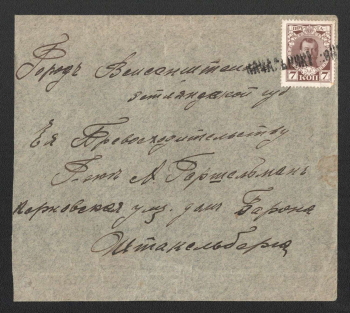 Городъ Вейсенштейнъ
Эстляндской губ
Ея Превосходительству
Г-жѣ А. Горшельманъ
ул. домъ Барона
Штакельберга
7 КОП 7